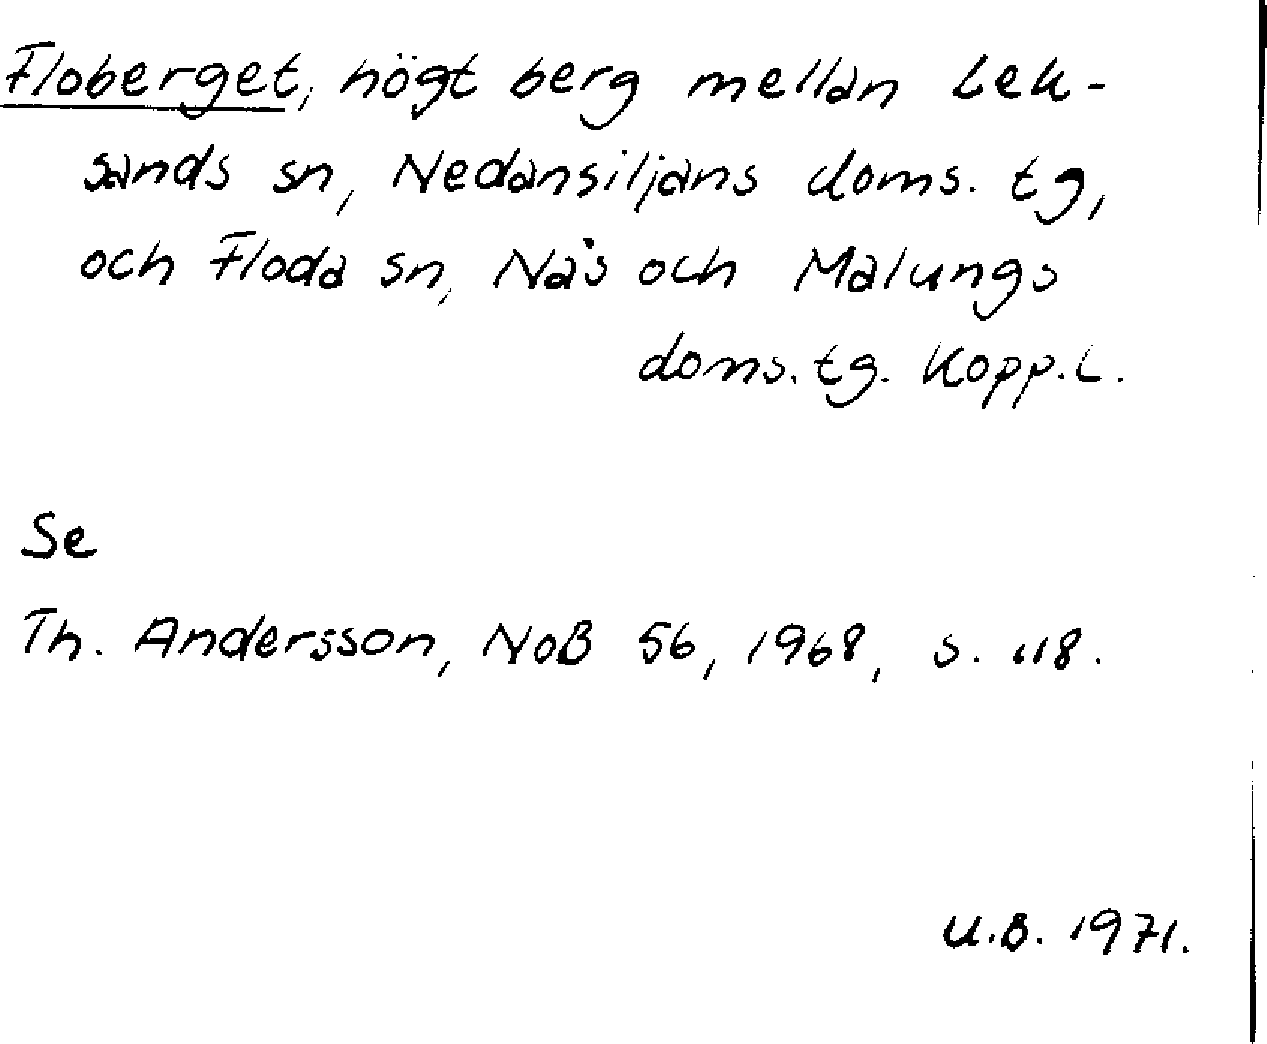 Floberget, högt berg mellan Lek-
sands sn, Nedansiljans doms. tg,
och Floda sn, Nås och Malungs
doms. tg. Kopp. L.
Se
Th. Andersson, NoB 56, 1968, s. 118.
U.B. 1971.